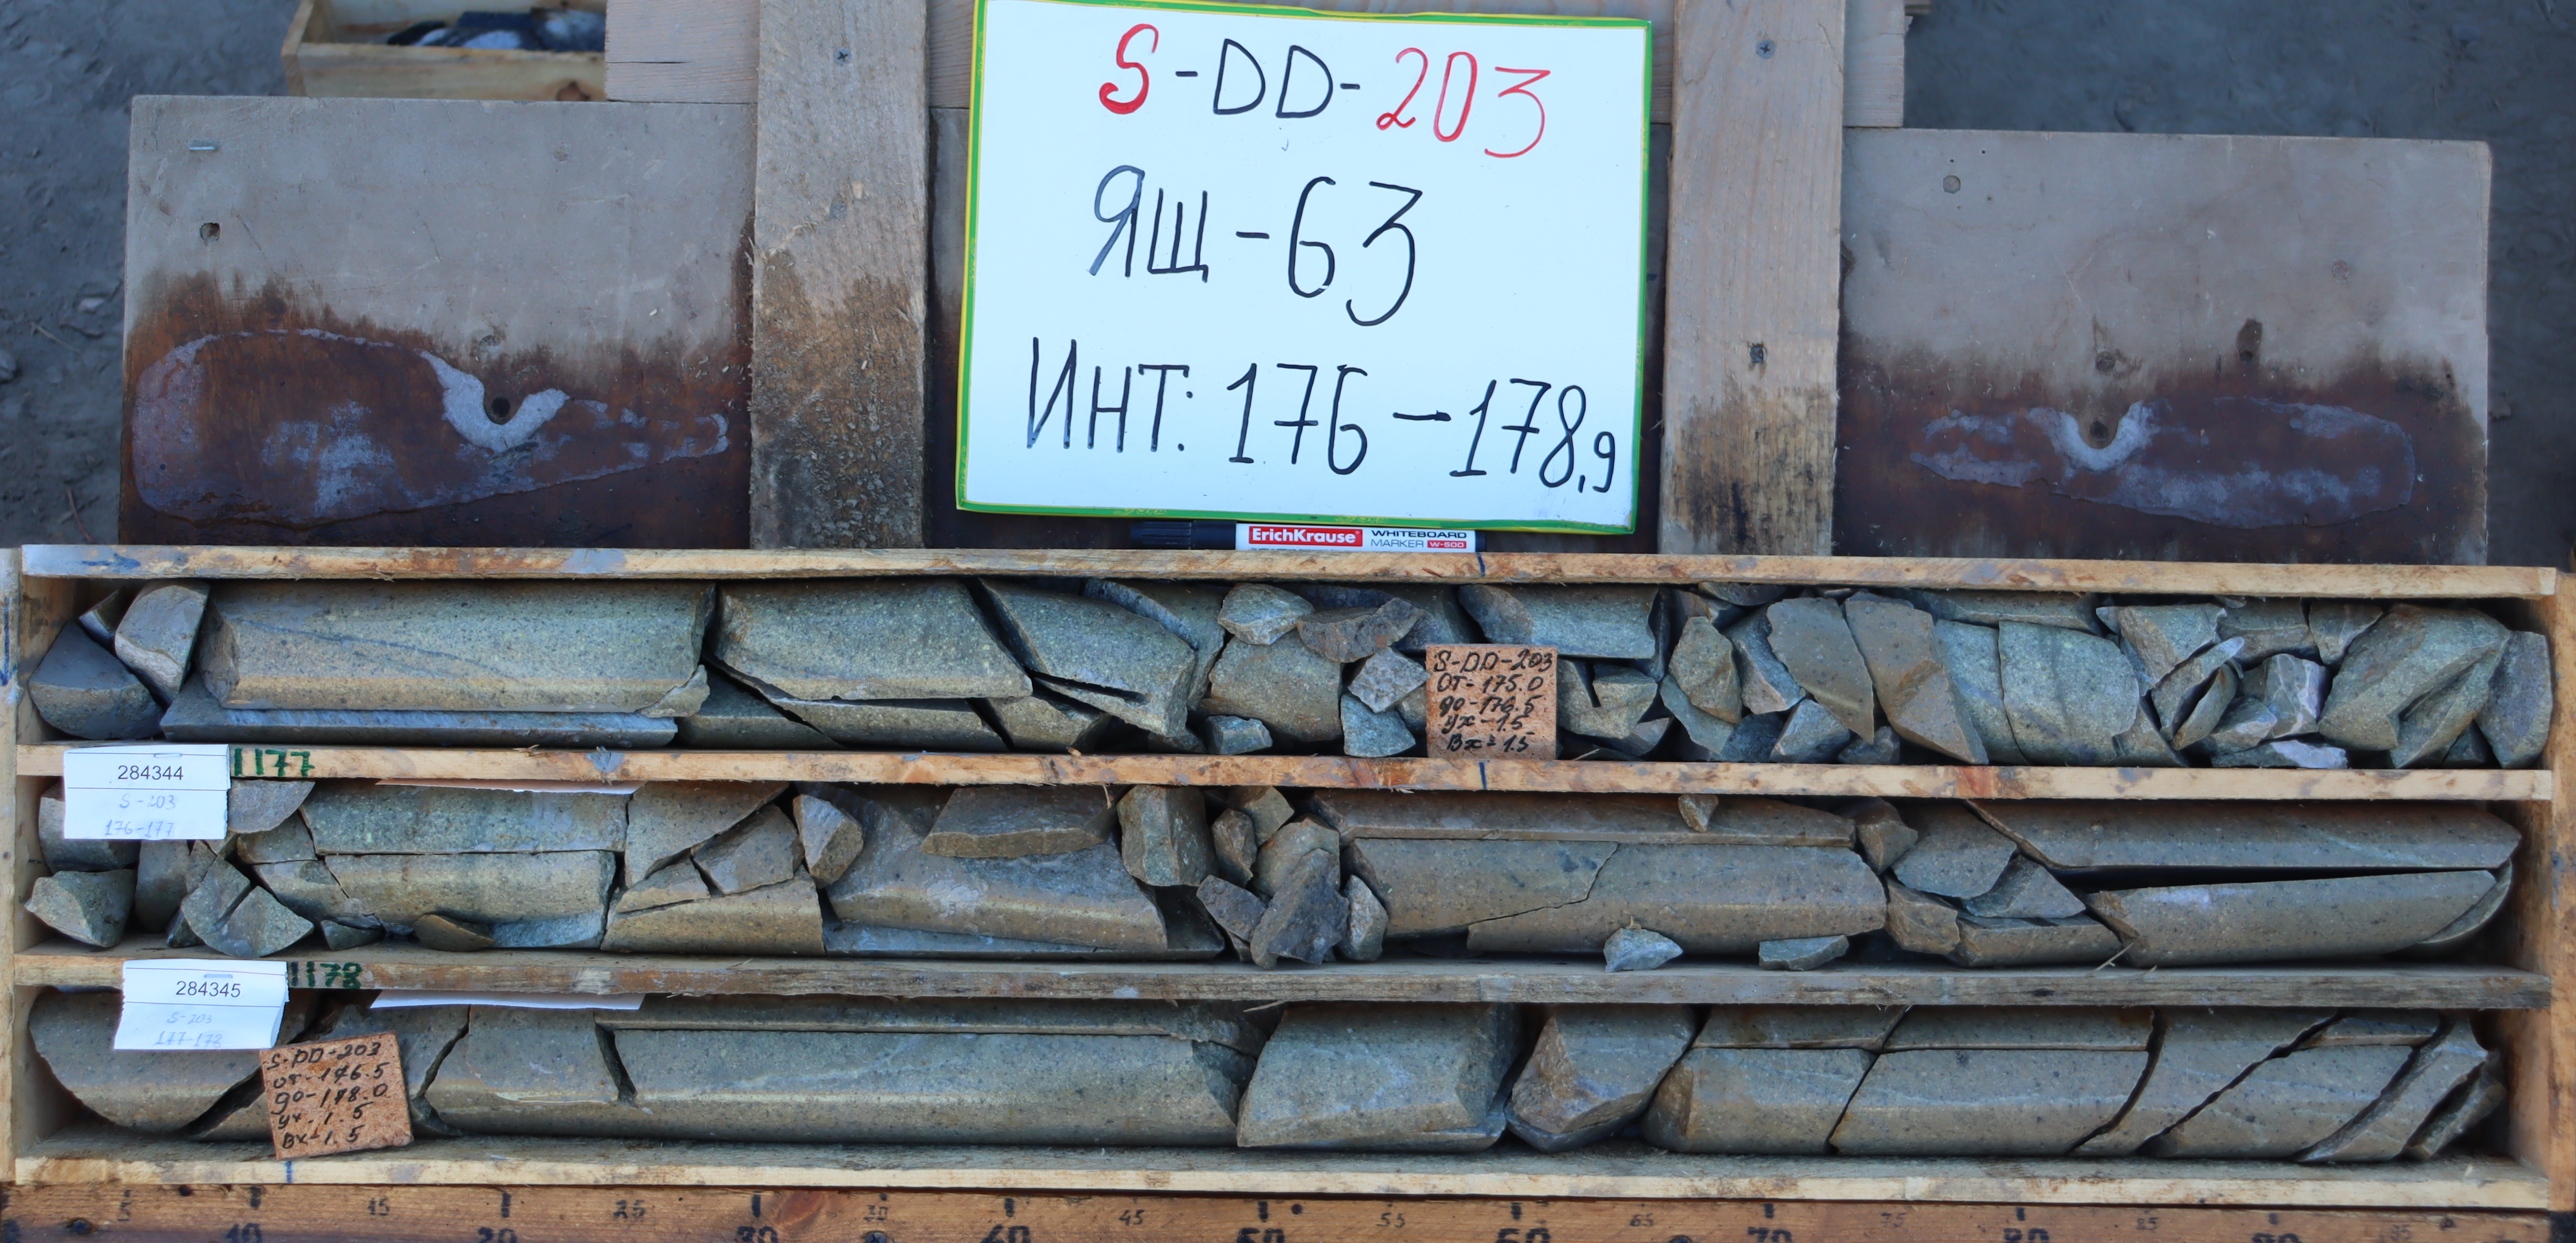 S-DD-203
ЯЩ-63
ИНТ: 176-178,9
ErichKrause
WHITEBOARD
MARKER W-500
S-DD-203
от-175.0
до-176.5
ух-1.5
Вх-1.5
284344
S-203
176-177
177
284345
S-203
177-178
178
S-DD-203
от-176.5
до-178.0
ух-1.5
Вх-1.5
5 10 15 20 25 30 40 45 50 55 60 65 70 75 80 85 90